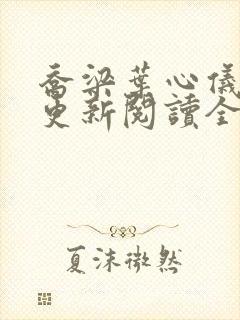 喬梁葉心儀
更新閱讀全
夏沫微然